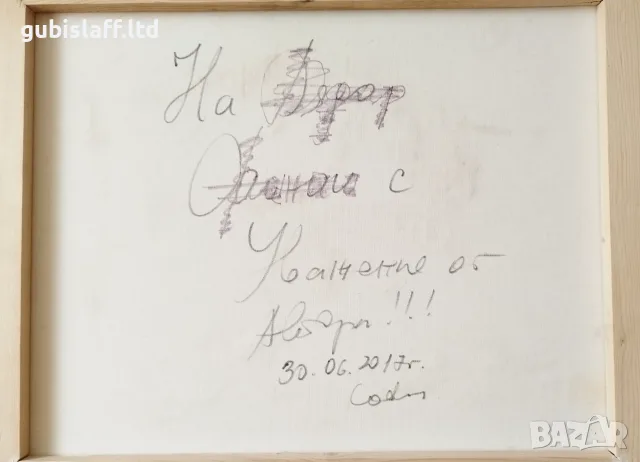 gubislaff.ltd
На
с
Уважение от
Автора!!!
30.06.2017г.
BAZAR